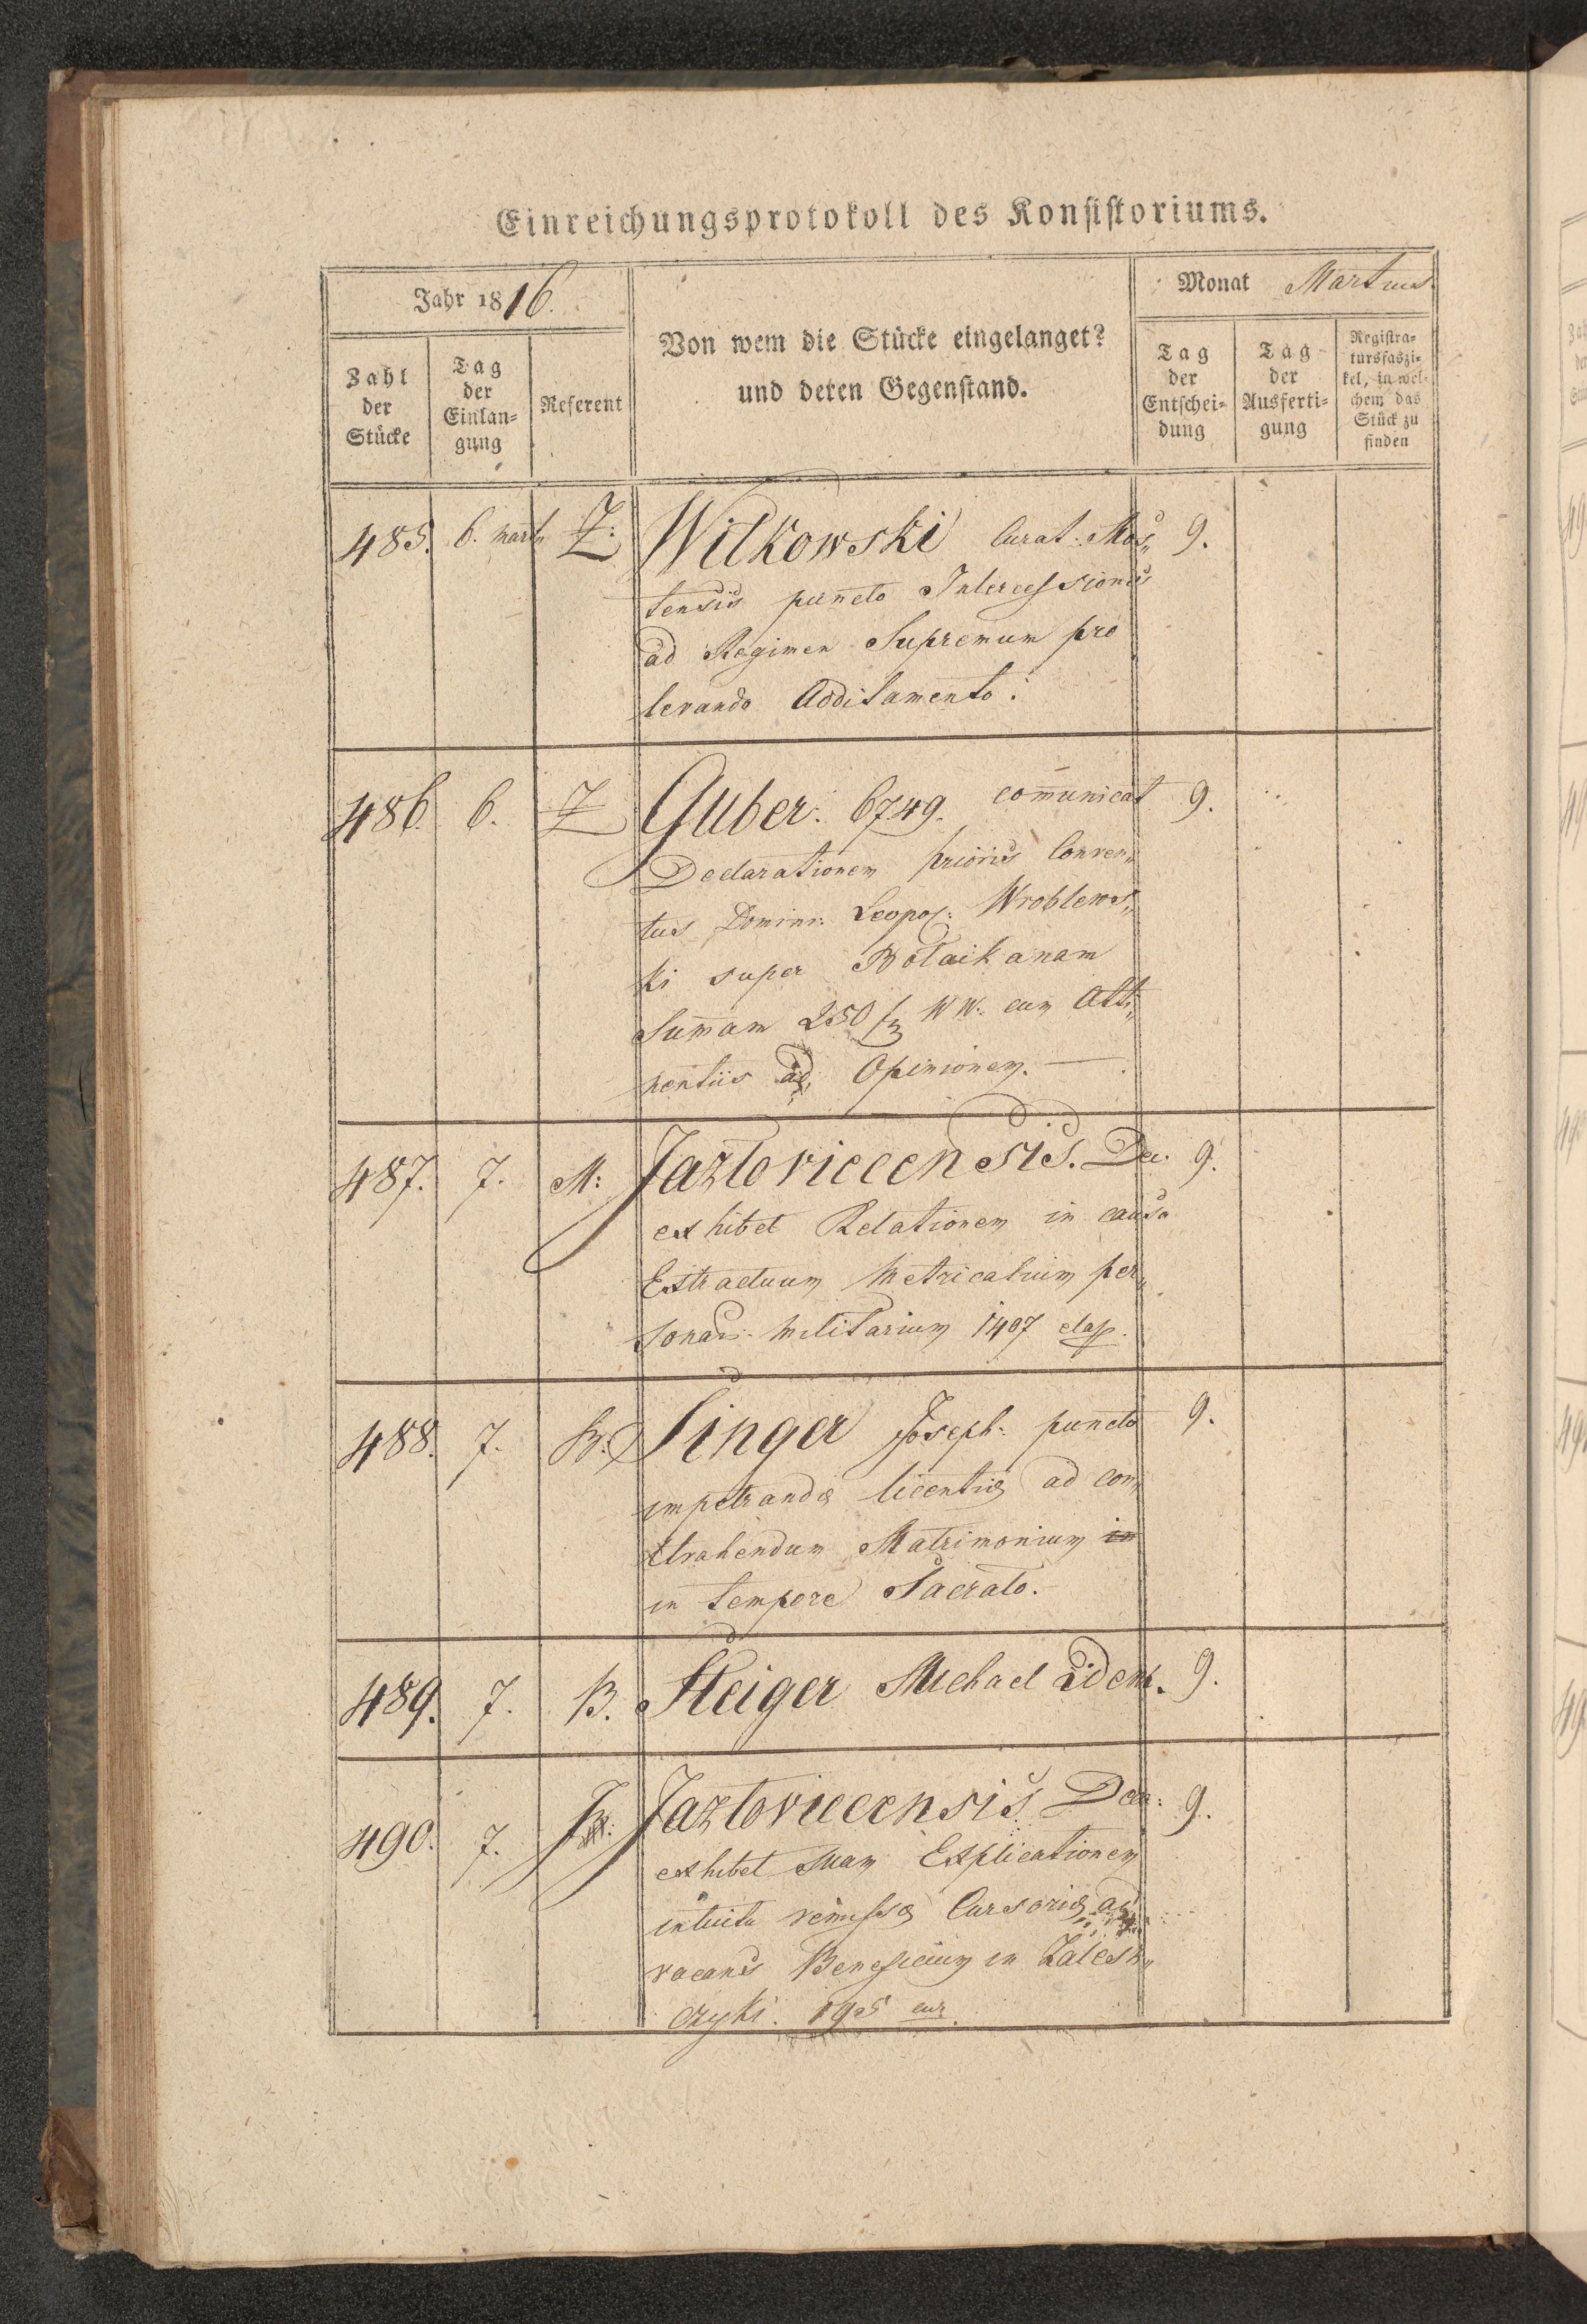 Einreichungsprotokoll des Konsistoriums.
Jahr 1816.
Monat Martius.
Zahl der Stücke
Tag der Einlan-gung
Referent
Von wem die Stücke eingelanget?
und deren Gegenstand.
Tag der Entschei-dung
Tag der Ausferti-gung
Registra-tursfaszi-kel, in wel-chem das Stück zu finden
485. 6. Marti Z: Wilkowski Curat. Mos„ 9.
tensis puncto Intercessionis
ad Regimen Supremum pro
levando Additamento.
486. 6. Z Guber: 6749. communicat 9.
Declarationem prioris Conven„
tus Domin: Leopol: Wroblews„
ki super Botaikanam
Summam 250 f WW. cum Atti„
nentiis ad Opinionem.
487. 7. M: Jazlovieccensis. Dec. 9.
exhibet Relationem in causa
Extractuum Metricalium per„
sonar: militarium 1407 elap.
488. 7. B. Singer Joseph. puncto 9.
impetrandæ licentiæ ad con„
trahendum Matrimonium in
in tempore Sacrato.
489. 7. B. Steiger Michael Idem. 9.
490. 7. Jazlovieccensis Dec: 9.
exhibet suam Explicationem
intuitu remissæ Cursoriæ ad
vacans Beneficium in Zalesz„
czyki. 195 cur.